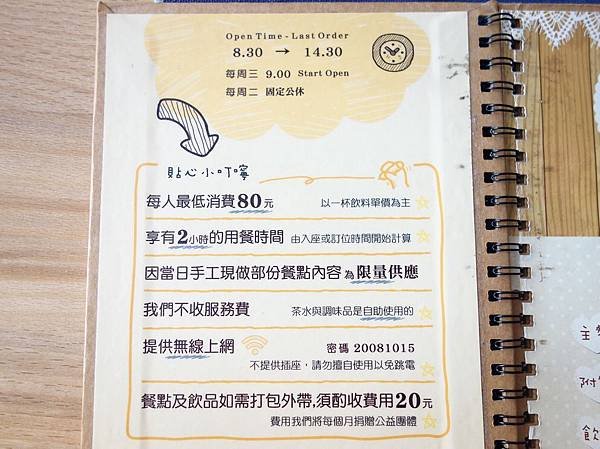 Open Time - Last Order
8.30 → 14.30
每周三 9.00 Start Open
每周二 固定公休
貼心小叮嚀
每人最低消費80元 以一杯飲料單價為主
享有2小時的用餐時間 由入座或訂位時間開始計算
因當日手工現做部份餐點內容為限量供應
我們不收服務費 茶水與調味品是自助使用的
提供無線上網 密碼 20081015
不提供插座，請勿擅自使用以免跳電
餐點及飲品如需打包外帶,須酌收費用20元
費用我們將每個月捐贈公益團體
主
附
飲